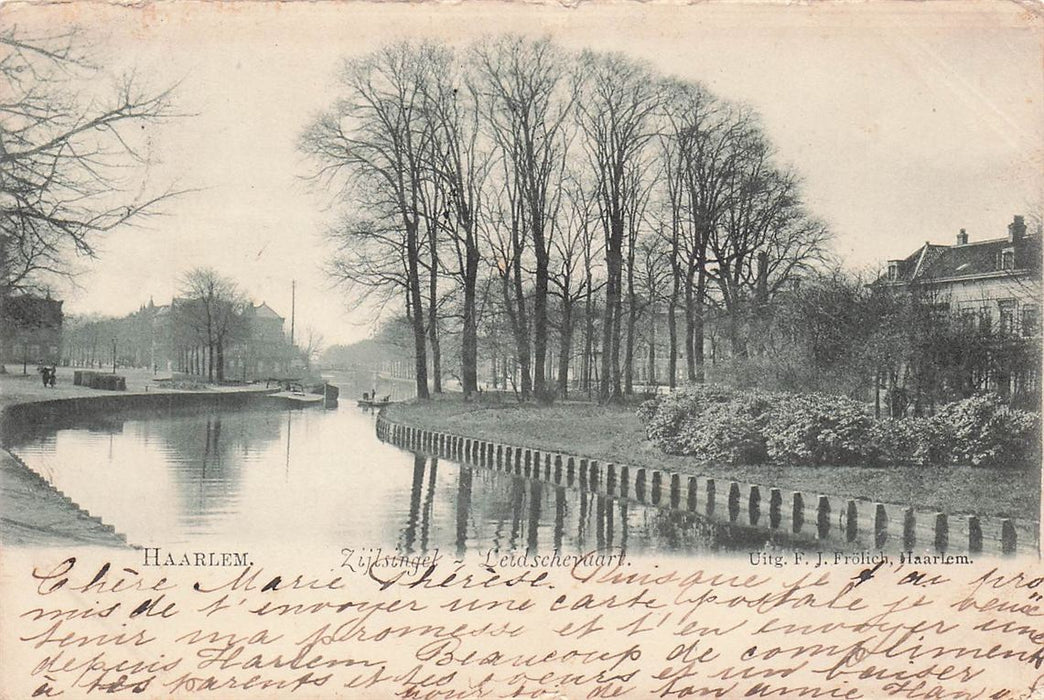 HAARLEM. Zijlsingel - Leidschevaart. Uitg. F. J. Frölich, Haarlem.
Chère Marie Thérèse. Puisque je t'ai pro
mis de t'envoyer une carte postale je veux
tenir ma promesse et t'en envoyer une
depuis Harlem. Beaucoup de compliments
à tes parents et tes soeurs et un baiser
pour toi de ton amie